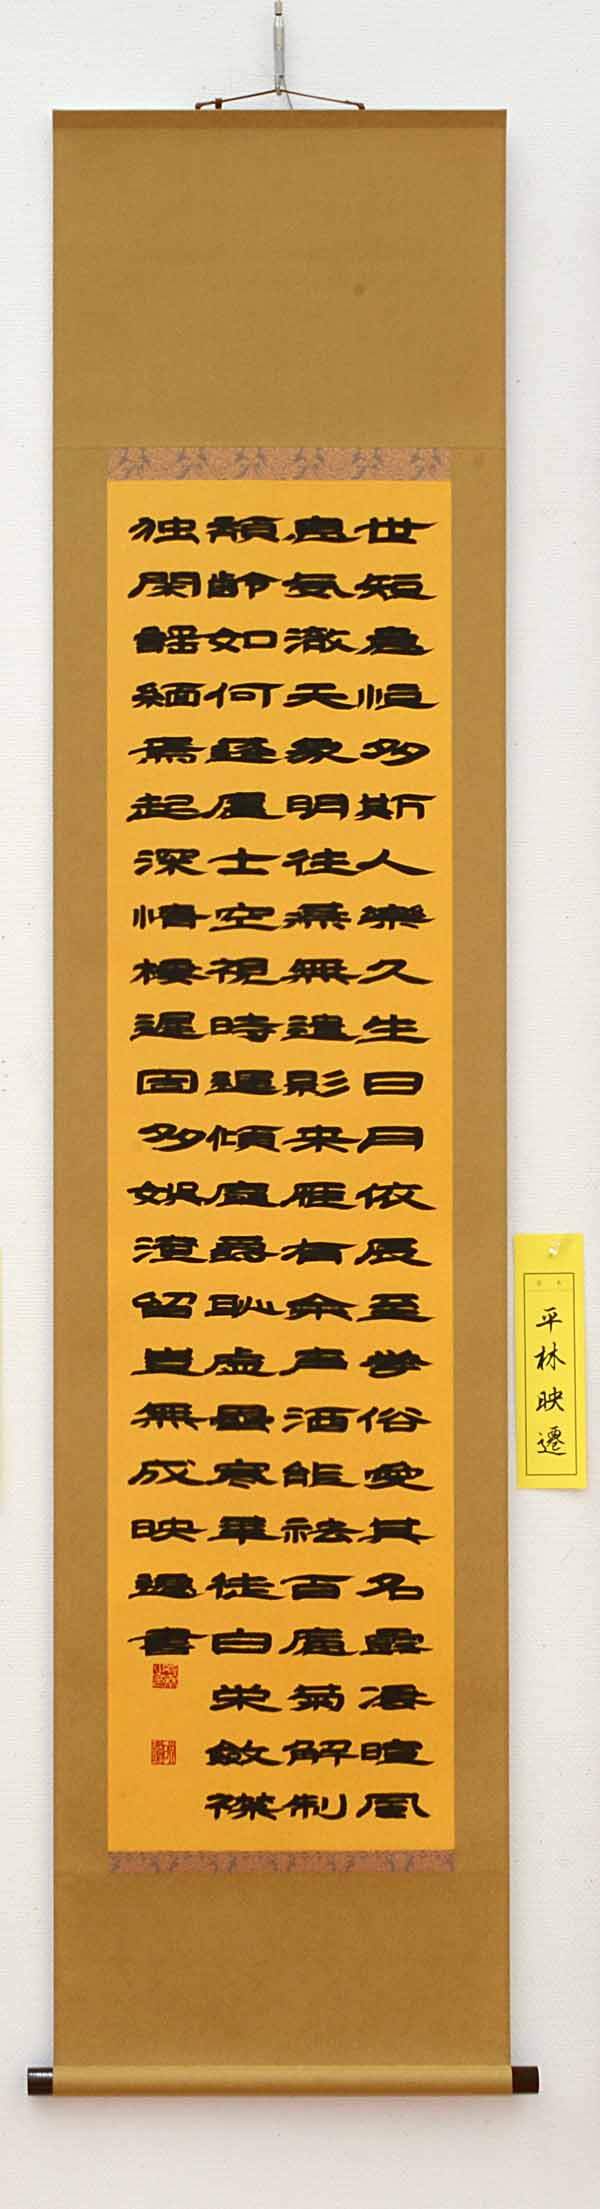 世短意恒多斯人樂久生日月依辰至挙俗愛其名露凄暄風
息気澈天象明往燕無遺影来雁有余声酒能祛百慮菊解制
頽齢如何蓬廬士空視時運傾塵爵恥虚罍寒華徒自栄斂襟
独閑謡緬焉起深情棲遅固多娯淹留豈無成映遷書
平林映遷